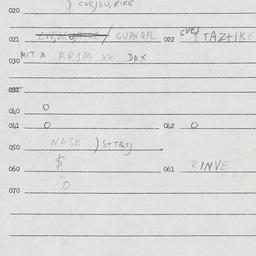 020 CVEJGU, RIKE
021 / GURNQPL 022 CVEJ TAZTIKE
030 MIT A KRIM XX DAX
031
040 O
041 O 042 O
050 NASE ) S+TREJ
060 $ 061 RINVE
070 O